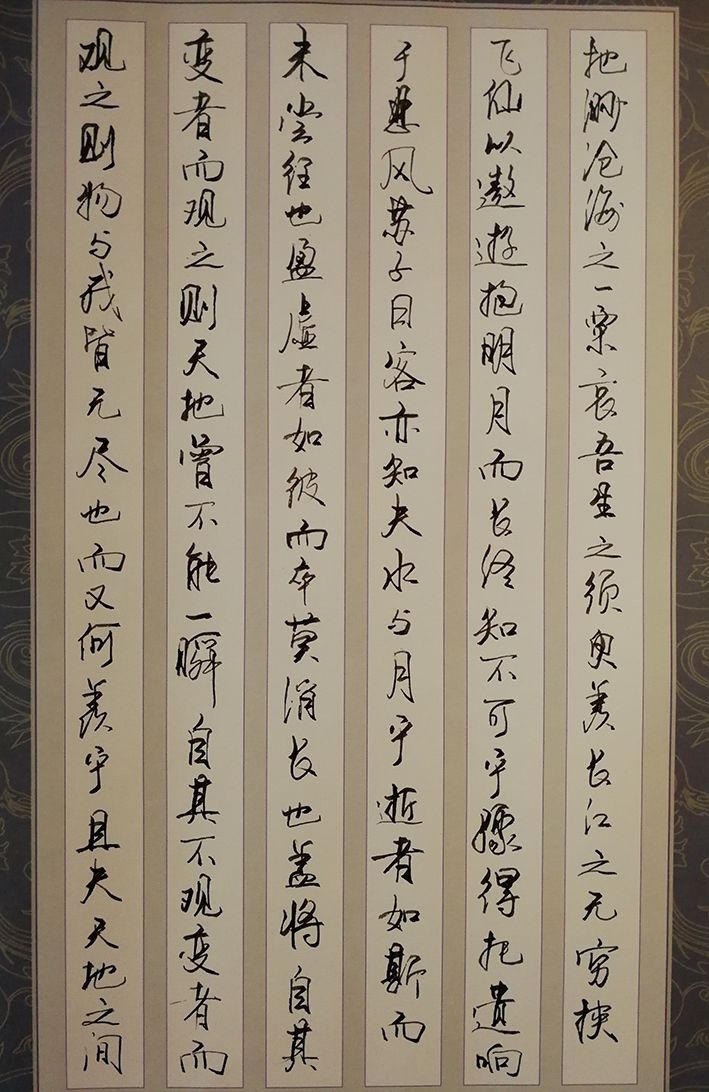 地渺沧海之一粟哀吾生之须臾羡长江之无穷挟
飞仙以遨遊抱明月而长终知不可乎骤得托遗响
于悲风苏子曰客亦知夫水与月乎逝者如斯而
未尝往也盈虚者如彼而卒莫消长也盖将自其
变者而观之则天地曾不能一瞬自其不观变者而
观之则物与我皆无尽也而又何羡乎且夫天地之间